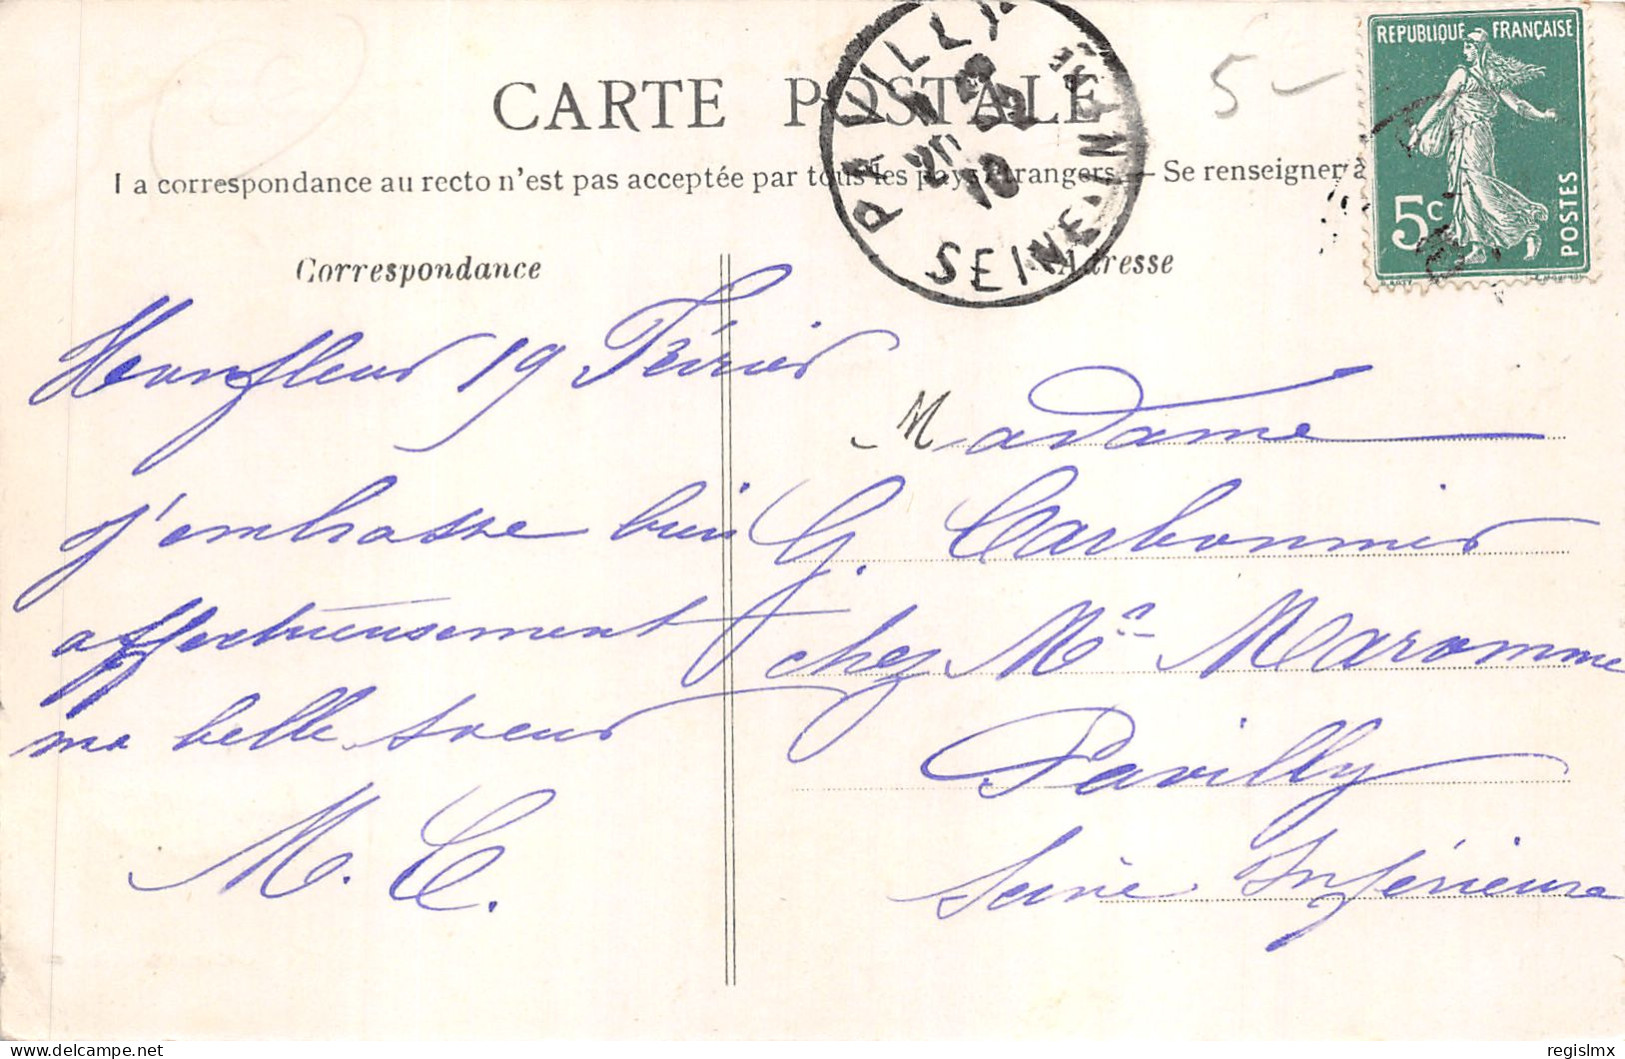 CARTE POSTALE
La correspondance au recto n'est pas acceptée par tous les pays étrangers — Se renseigner à
REPUBLIQUE FRANÇAISE
5c
POSTES
5 –
PAVILLY
20 - 2
10
SEINE-INFRE
Correspondance
Adresse
Honfleur 19 Février
j'embrasse bien
affectueusement
ma belle soeur
M. C.
Madame
G. Carbonnier
chez Mr Maromme
Pavilly
Seine Inférieure
regislmx